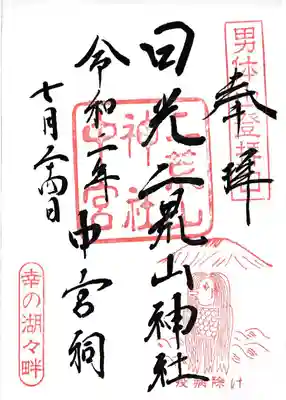 奉拝
日光二荒山神社
中宮祠
令和二年
七月二十四日
二荒山
神社
中宮
男体山登拝口
幸の湖々畔
疫病除け